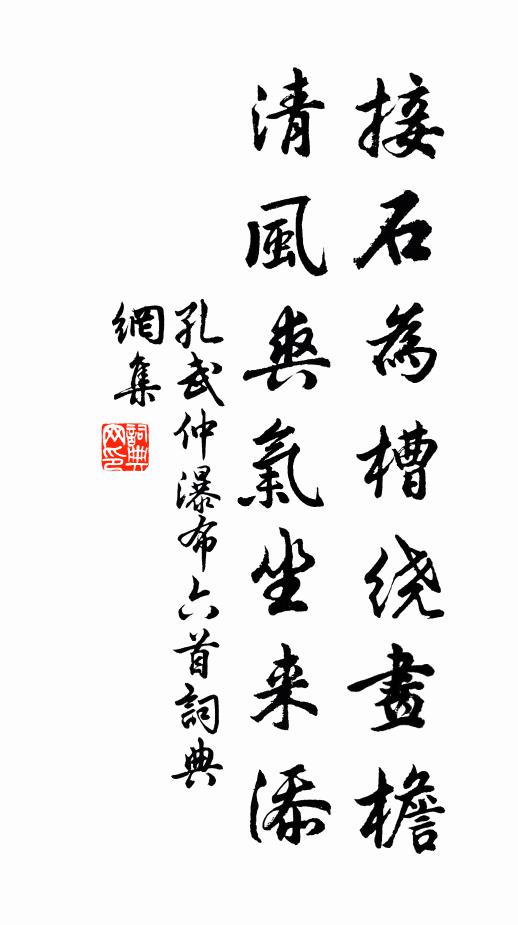 接石為槽绕畫檐
清風爽氣坐来添
孔武仲瀑布六首詞典
網集
詞典網印